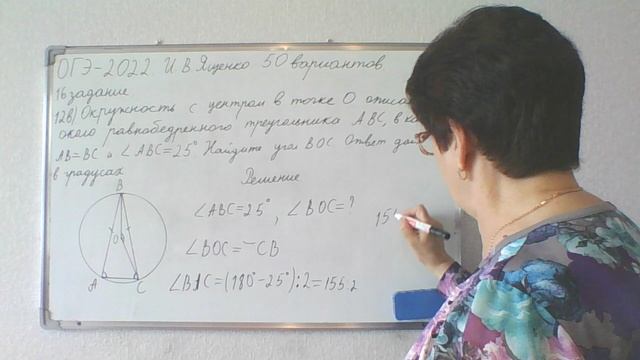 ОГЭ-2022 И.В.Ященко 50 вариантов
16 задание
12в) Окружность с центром в точке О описа
около равнобедренного треугольника ABC, в ко
AB=BC и ∠ABC=25° Найдите угол BOC Ответ дай
в градусах
Решение
B
∠ABC=25°, ∠BOC=?
O
∠BOC=⌣CB
A C
∠BAC=(180°-25°):2=155:2
15